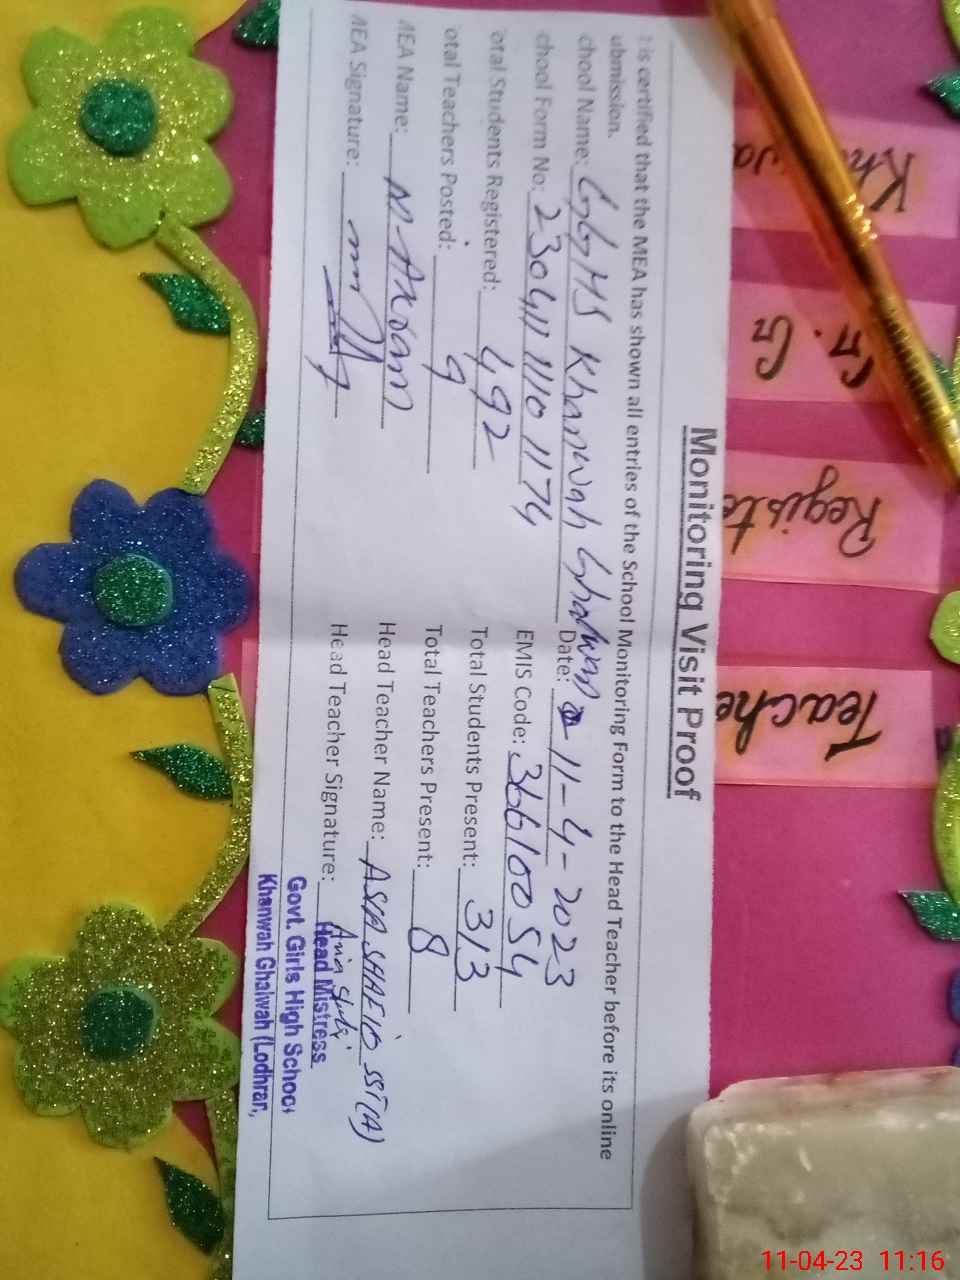 Monitoring Visit Proof
t is certified that the MEA has shown all entries of the School Monitoring Form to the Head Teacher before its online
ubmission.
chool Name: GGHS Khanwah Ghalwah Date: 11-4-2023
chool Form No: 2304111101174 EMIS Code: 36610054
otal Students Registered: 492 Total Students Present: 313
otal Teachers Posted: 9 Total Teachers Present: 8
MEA Name: N-Akram Head Teacher Name: ASIA SHAFIQ SST(A)
MEA Signature: Head Teacher Signature:
Head Mistress
Govt. Girls High School
Khanwah Ghalwah (Lodhran,
G.G
Registe
Teache
11-04-23 11:16